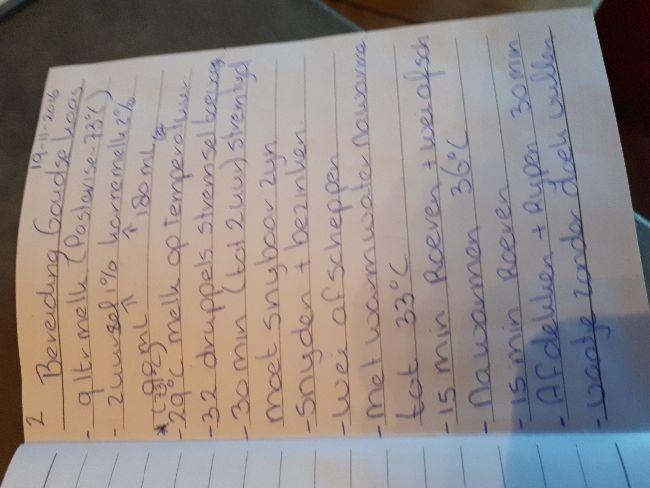 19-11-2016
2 Bereiding Goudse kaas
- 9 ltr melk (Pastarise-73°C)
- 2 uur zsl 1% karnemelk 2%
90 mL 180 mL
* (73°C)
- 29°C melk op temperatuur
- 32 druppels stremsel toevoeg
- 30 min (tot 2 uur) stremtyd
moet snybaar zyn
- Snyden + bezinken
- Wei afscheppen
- Met warm water nawarme
tot 33°C
- 15 min Roeren + wei afsch
- Nawarmen 36°C
- 15 min Roeren
- Afdekken + Rypen 30 min
- vaatje zonder doek vullen